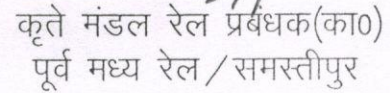 कृते मंडल रेल प्रबंधक(का0)
पूर्व मध्य रेल/समस्तीपुर